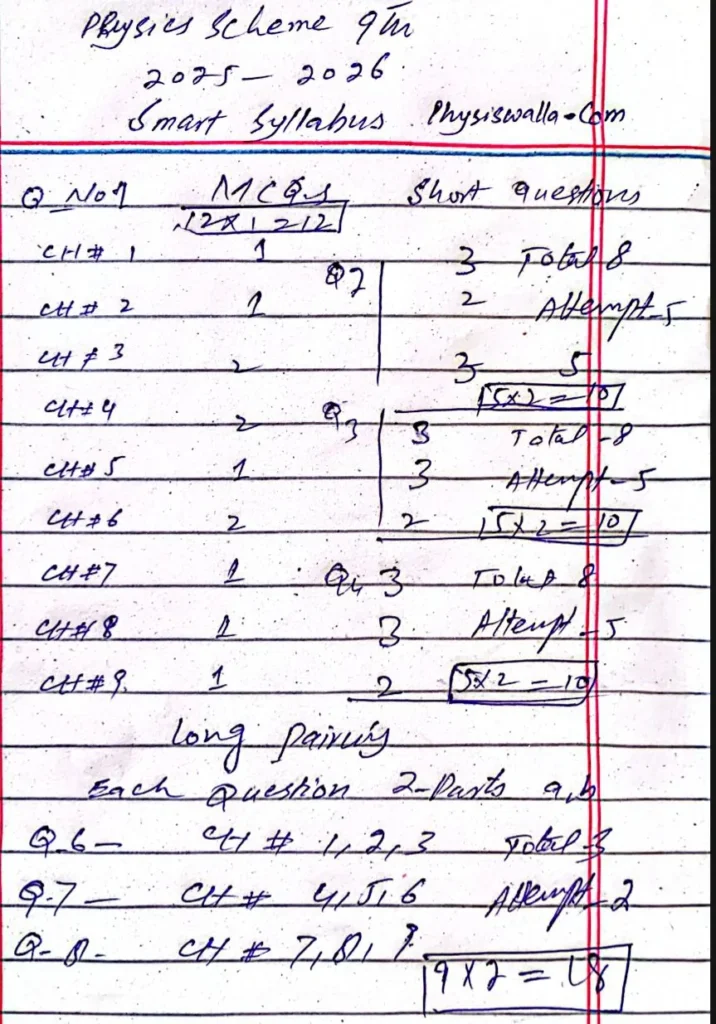 Physics Scheme 9th
2025 - 2026
Smart Syllabus Physiswalla.Com
Q No 1 MCQs Short questions
12x1=12
CH # 1 1 Q2 3 Total 8
CH # 2 1 2 Attempt-5
CH # 3 2 3 5
5x2=10
CH # 4 2 Q3 3 Total -8
CH # 5 1 3 Attempt-5
CH # 6 2 2 5x2=10
CH # 7 1 Q4 3 Total 8
CH # 8 1 3 Attempt-5
CH # 9. 1 2 5x2=10
Long pairing
Each Question 2-Parts a,b
Q.6 - CH # 1,2,3 Total-3
Q.7 - CH # 4,5,6 Attempt-2
Q-8- CH # 7,8,9
9x2=18